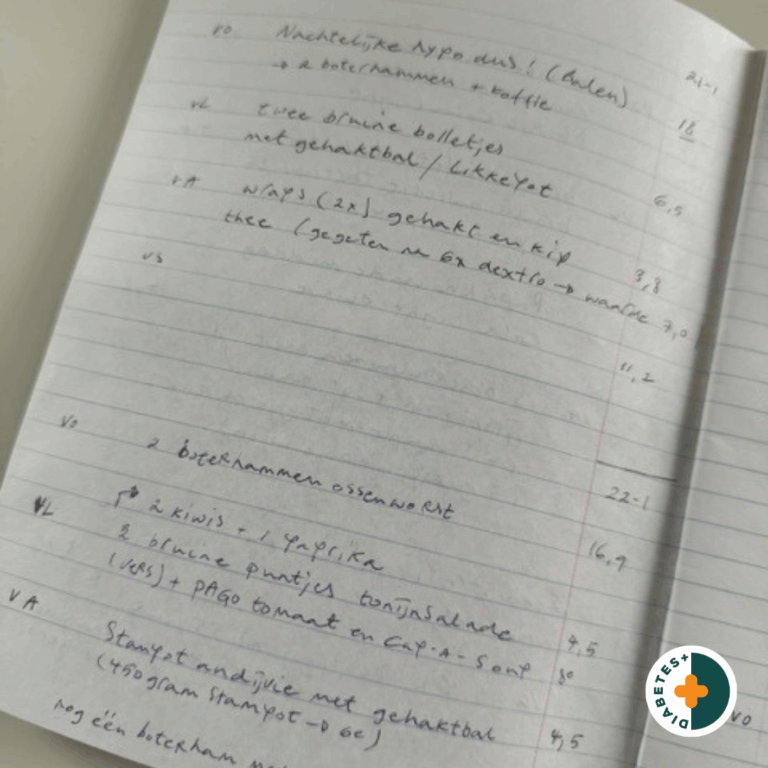 21-1
VO Nachtelijke hypo dus! (Balen) 18
→ 2 boterhammen + koffie
VL twee bruine bolletjes 6,5
met gehaktbal / Likkepot
VA wraps (2x) gehakt en kip 3,8
thee (gegeten na 6x dextro → waarde 7,0
VS 11,2
22-1
VO 2 boterhammen ossenworst 16,9
2 kiwis + 1 paprika
VL 2 bruine puntjes tonijnsalade 4,5
(vers) + PAGO tomaat en Cup-A-Soup
VA Stampot andijvie met gehaktbal 4,5
(450 gram stampot → 6e)
nog één boterham
VO
DIABETES+